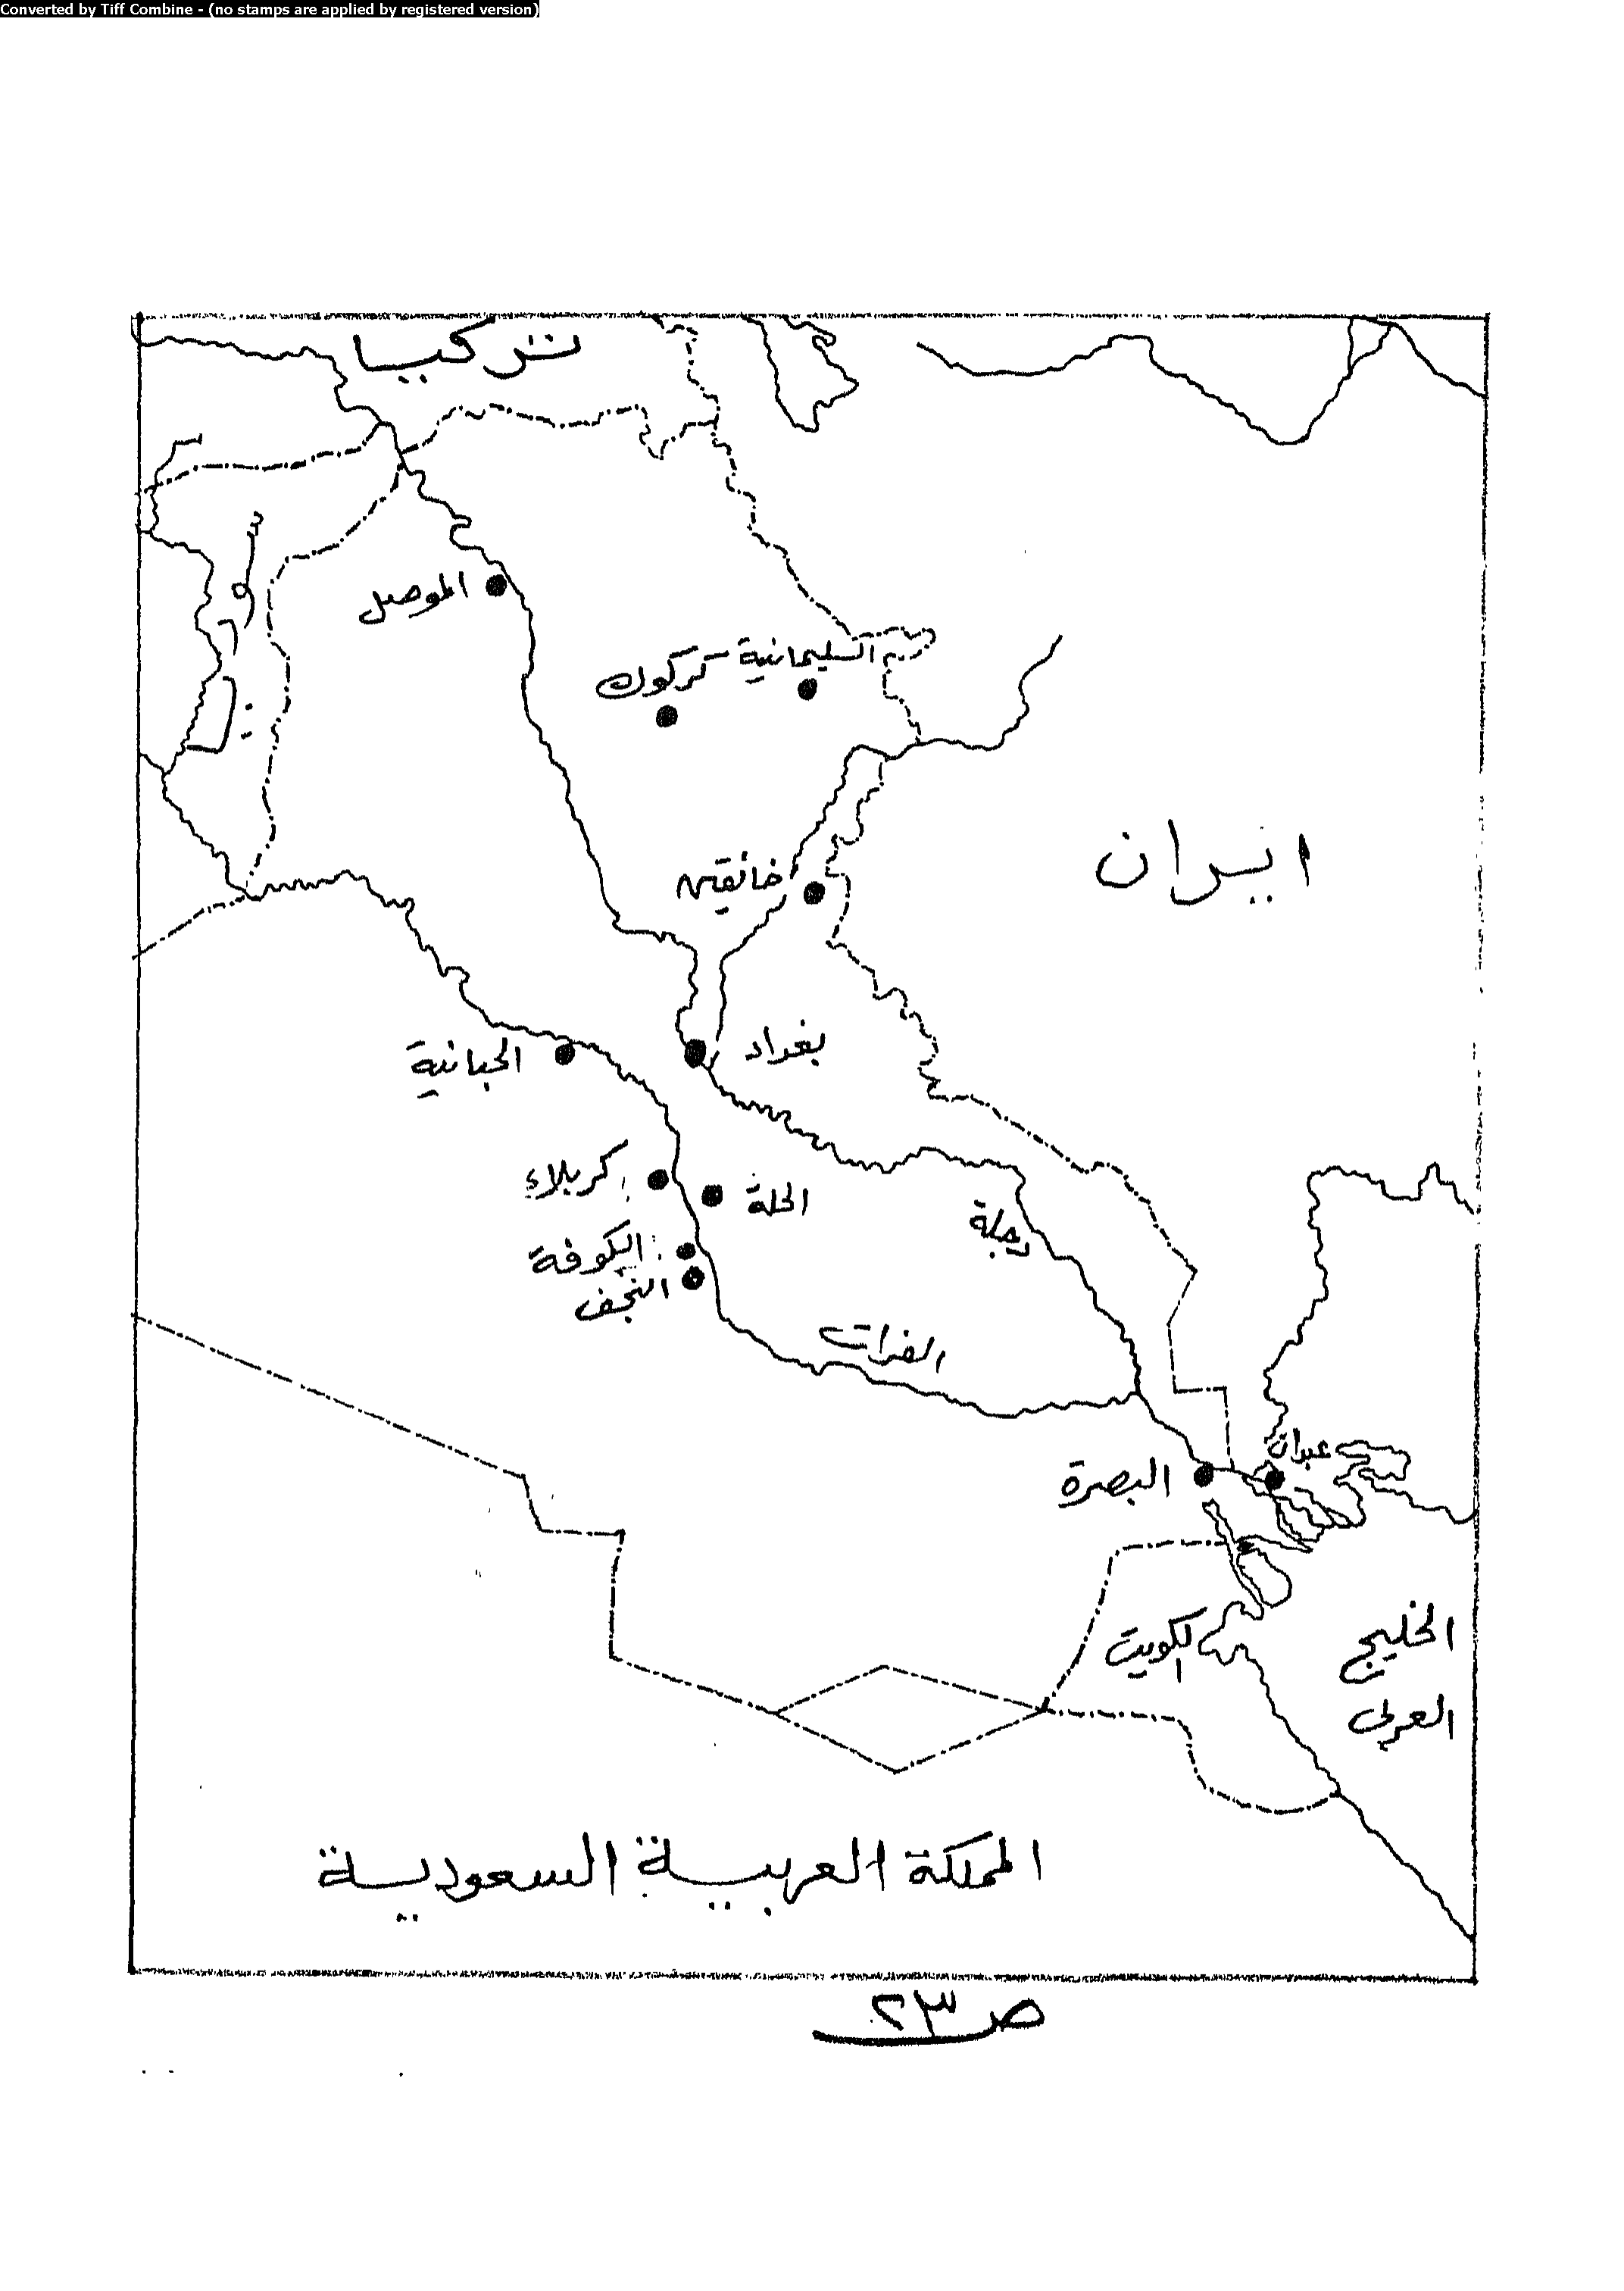 Converted by Tiff Combine - (no stamps are applied by registered version)
تركيا
سوريا
الموصل
السليمانية
كركوك
ايران
خانقين
بغداد
الحبانية
كربلاء
الحلة
دجلة
الكوفة
النجف
الفرات
عبدان
البصرة
الكويت
الخليج
العربي
المملكة العربية السعودية
ص ٢٣